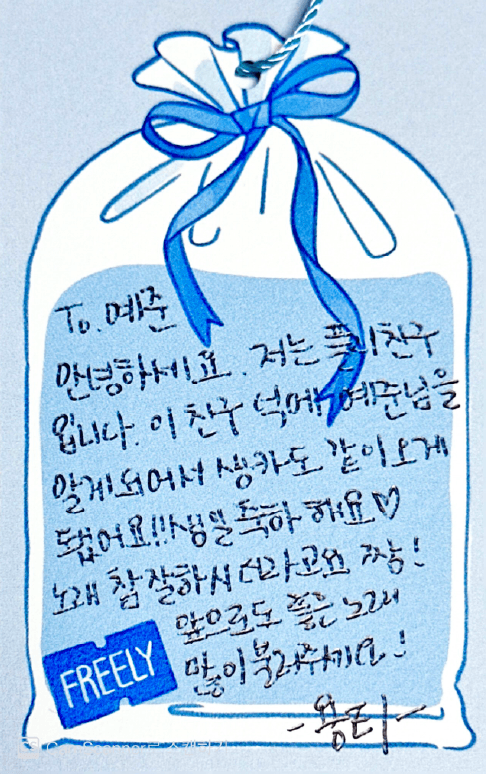 To. 예준
안녕하세요. 저는 플리친구
입니다. 이 친구 덕에 예준님을
알게되어서 생카도 같이오게
됐어요!! 생일 축하 해요♡
노래 참 잘하시더라고요 짱!
앞으로도 좋은 노래
많이 불러주세요!
FREELY